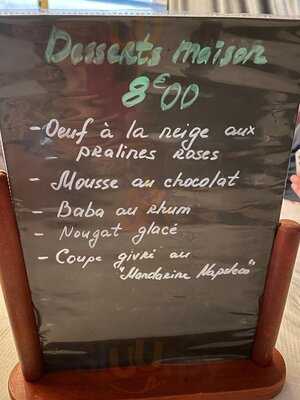 Desserts maison
8€00
- Oeuf à la neige aux
- pralines roses
- Mousse au chocolat
- Baba au rhum
- Nougat glacé
- Coupe givré au
"Mandarine Napoleco"